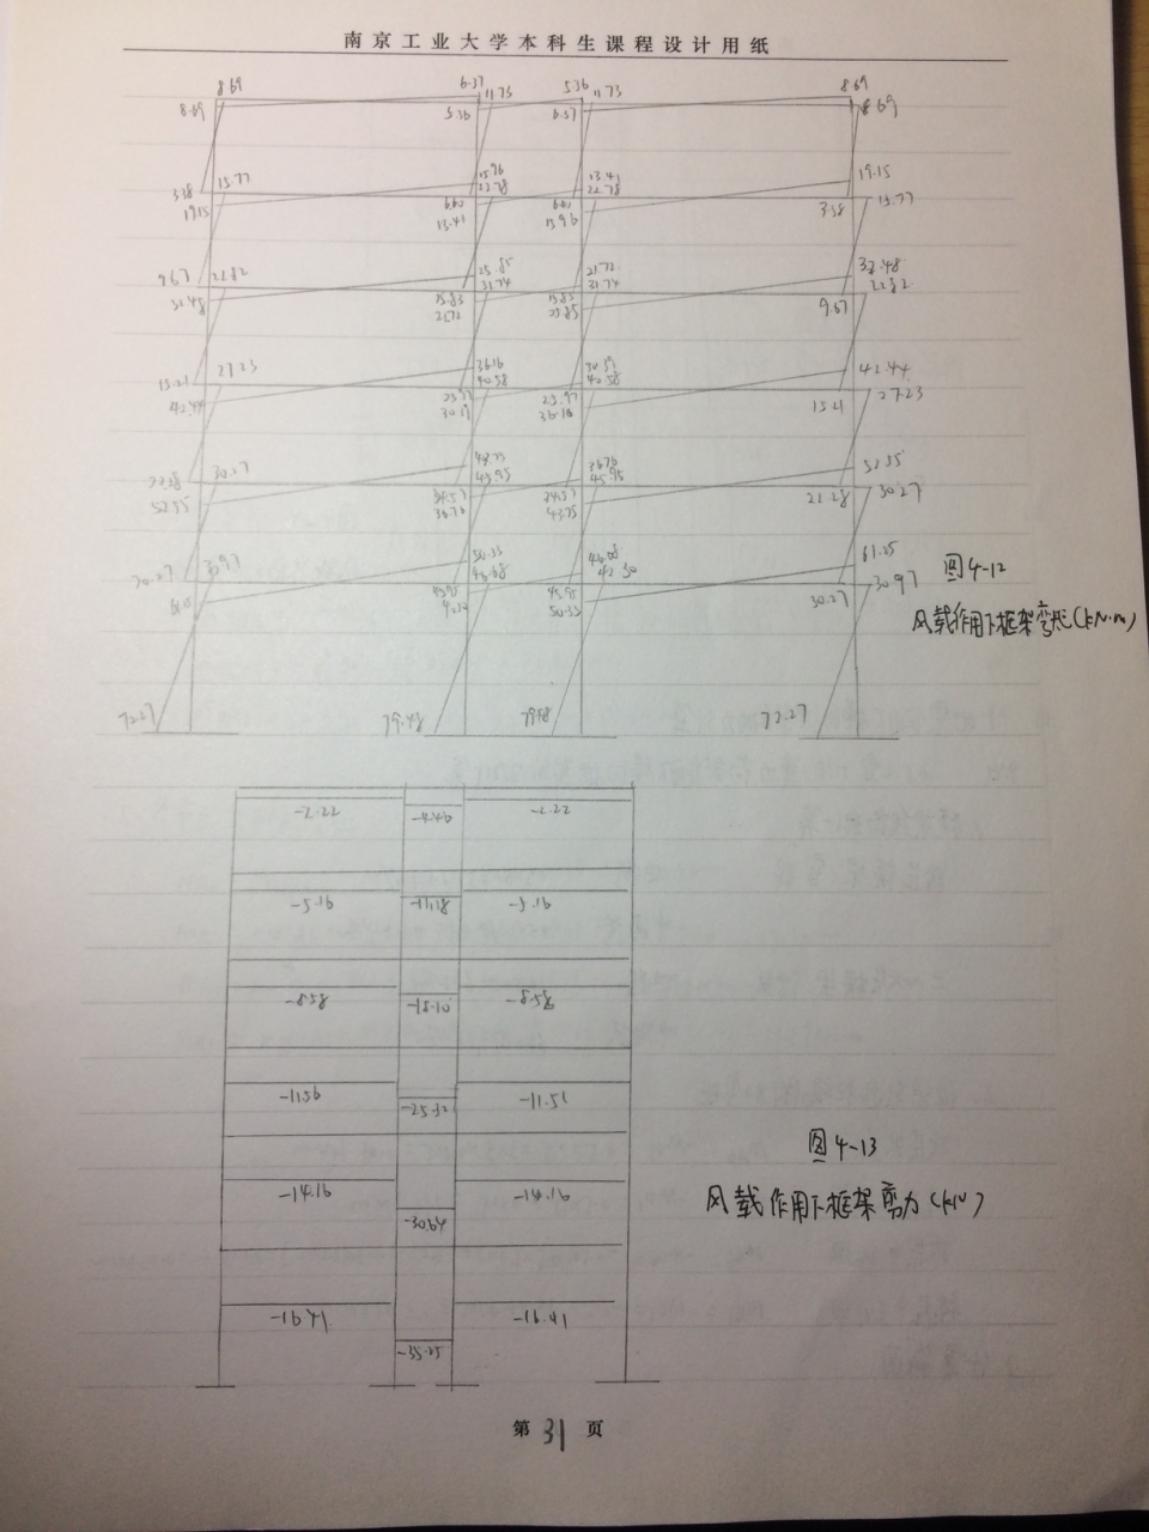 南京工业大学本科生课程设计用纸
8.69 6.37 5.36 8.69
8.69 5.36 11.73 6.37 11.73 8.69
15.77 15.96 13.41 19.15
3.38 22.78 22.78
19.15 6.60 6.60 3.38 15.77
13.41 15.96
9.67 22.82 25.85 21.72 32.48
32.48 15.83 31.74 15.83 31.74 22.82
21.72 25.85 9.67
27.23 36.16 30.39 42.44
15.21 40.58 40.58
42.44 25.97 25.97 15.21 27.23
30.39 36.16
30.27 43.75 36.76 52.55
22.28 45.95 45.95
52.55 34.57 34.57 21.28 30.27
36.76 43.75
30.97 50.33 61.25
30.27 42.30
45.95 45.95 30.27 30.97
50.33
图4-12
风载作用下框架弯矩(kN·m)
72.27 79.48 79.48 72.27
-2.22 -4.46 -2.22
-5.16 -11.18 -5.16
-8.58 -18.10 -8.58
-11.56 -25.32 -11.51
图4-13
-14.16 -14.16
风载作用下框架剪力(kN)
-30.64
-16.41 -16.41
-35.25
第 31 页